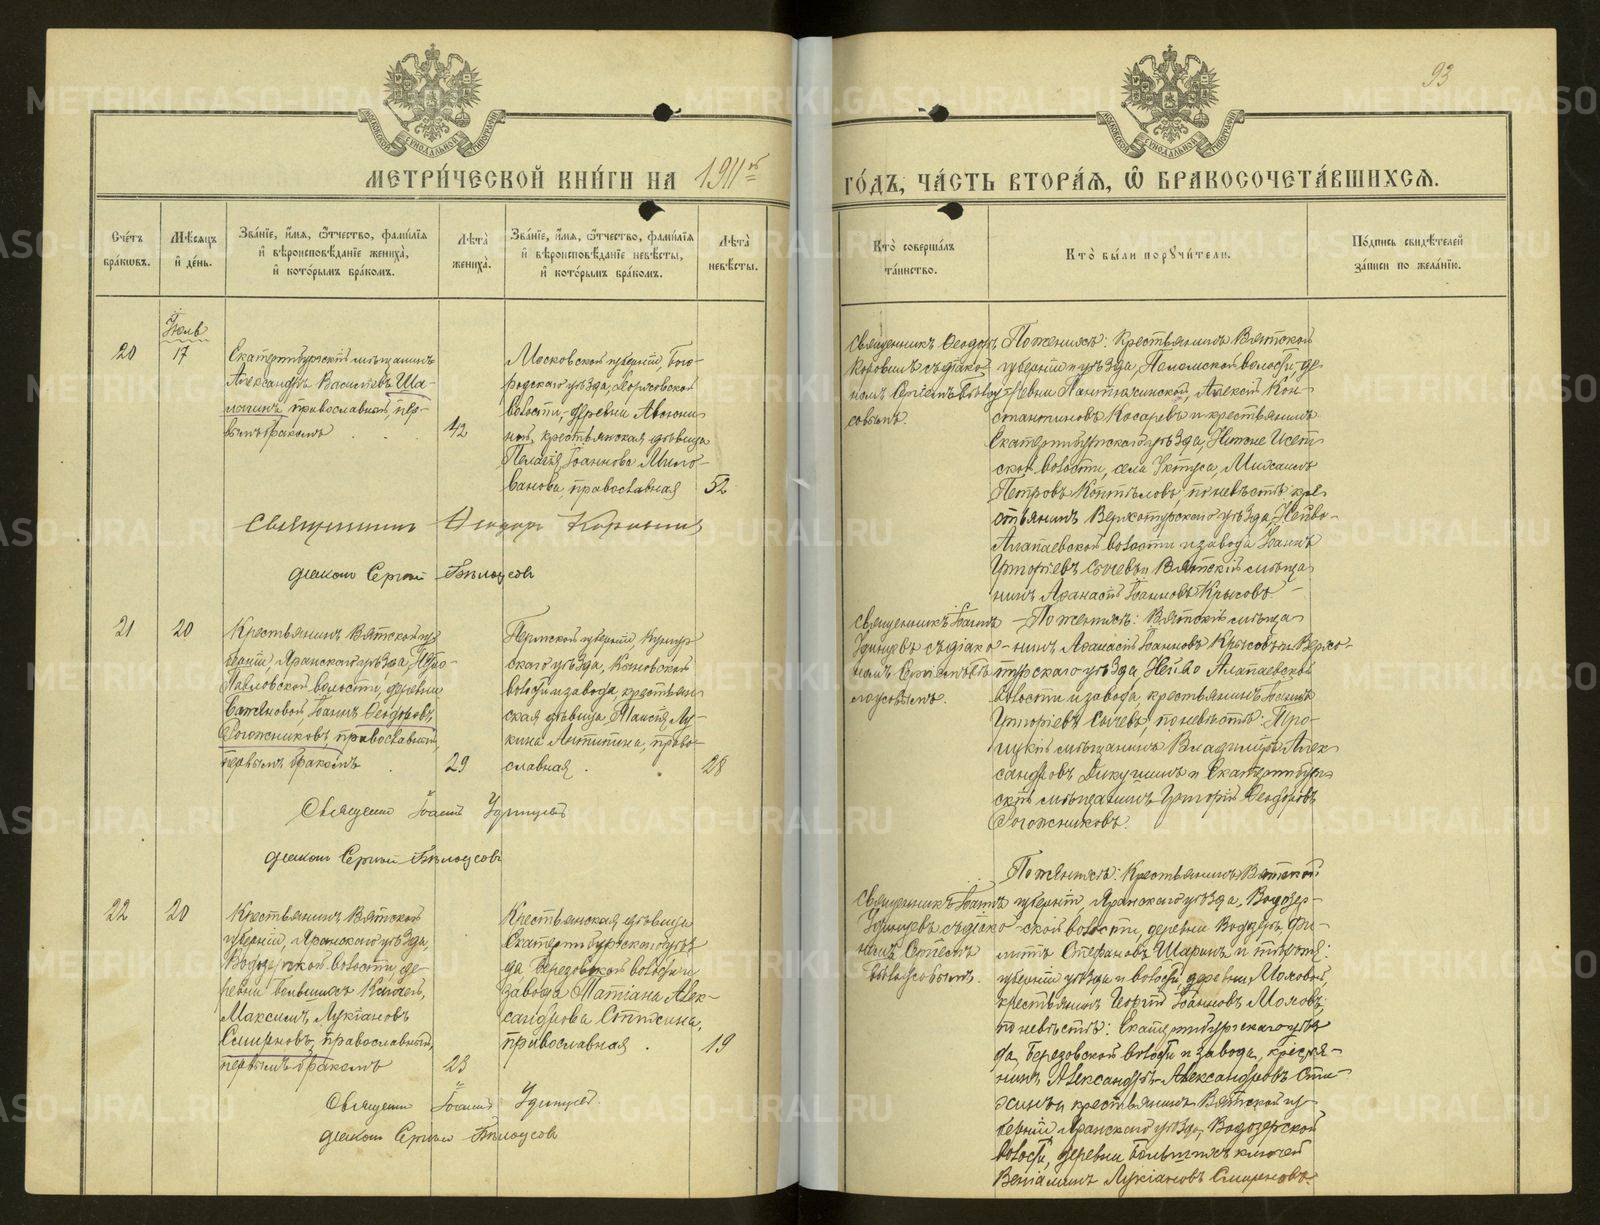 93
МЕТРИ́ЧЕСКОЙ КНИ́ГИ НА 1911
ГО́ДЪ, ЧА́СТЬ ВТОРА́Я, Ѿ БРАКОСОЧЕТА́ВШИХСЯ.
Сче́тъ бра́ковъ.
Мѣ́сяцъ и де́нь.
Зва́нїе, и́мя, ѻ́тчество, фами́лїя
и вѣроисповѣ́данїе жениха̀,
и кото́рымъ бра́комъ.
Лѣ́та жениха̀.
Зва́нїе, и́мя, ѻ́тчество, фами́лїя
и вѣроисповѣ́данїе невѣ́сты,
и кото́рымъ бра́комъ.
Лѣ́та невѣ́сты.
Кто̀ соверша́лъ
та́инство.
Кто̀ бы́ли пору҆чи́тели.
По́дпись свидѣ́телей
за́писи по жела́нїю.
Іюль
20
17
Екатеринбургскій мѣщанинъ
Александръ Васильевъ Ша-
православный, пер-
вымъ бракомъ
42
Московской губерніи, Бого-
родскаго уѣзда,
волости, деревни
крестьянская дѣвица
Пелагія Іоаннова Мило-
ванова, православная
52
Священникъ Ѳеодоръ
Коровинъ съ діако-
номъ Сергіемъ Бѣлоу-
совымъ.
По женихѣ: Крестьянинъ Вятской
губерніи и уѣзда, волости, де-
ревни Алексій Кон-
стантиновъ Косаревъ и крестьянинъ
Екатеринбургскаго уѣзда, Нижне Исет-
ской волости, села Уктуса, Михаилъ
Петровъ Коптѣловъ; по невѣстѣ: кре-
стьянинъ Верхотурскаго уѣзда, Нейво-
Алапаевской волости и завода Іоаннъ
Григорьевъ Сычевъ и Вятскій мѣща-
нинъ Аѳанасій Іоанновъ Крысовъ.
Священникъ Ѳеодоръ Коровинъ
діаконъ Сергий Бѣлоусовъ
21
20
Крестьянинъ Вятской гу-
берніи, Яранскаго уѣзда,
волости, деревни
Іоаннъ Ѳеодоровъ
Рогожниковъ, православный,
первымъ бракомъ
29
Пермской губерніи, Кунгур-
скаго уѣзда,
волости и завода, крестьян-
ская дѣвица Таисія Лу-
кина Антипина, право-
славная.
28
Священникъ Іоаннъ
Удинцевъ съ діако-
номъ Сергіемъ Бѣ-
лоусовымъ.
По женихѣ: Вятскій мѣща-
нинъ Аѳанасій Іоанновъ Крысовъ и Верхо-
турскаго уѣзда, Нейво Алапаевской
волости и завода, крестьянинъ Іоаннъ
Григорьевъ Сычевъ; по невѣстѣ: Тро-
ицкій мѣщанинъ Владиміръ Алек-
сандровъ и Екатеринбург-
скій мѣщанинъ Григорій Ѳеодоровъ
Рогожниковъ.
Священникъ Іоаннъ Удинцевъ
діаконъ Сергий Бѣлоусовъ
22
20
Крестьянинъ Вятской
губерніи, Яранскаго уѣзда,
Водозерской волости, де-
ревни Большихъ Ключей,
Максимъ Лукіановъ
Смирновъ, православный,
первымъ бракомъ
23
Крестьянская дѣвица
Екатеринбургскаго уѣз-
да Березовской волости и
завода Татіана Алек-
сандрова
православная.
19
Священникъ Іоаннъ
Удинцевъ съ діако-
номъ Сергіемъ
Бѣлоусовымъ.
По женихѣ: Крестьянинъ Вятской
губерніи, Яранскаго уѣзда, Водозер-
ской волости, деревни Фи-
липпъ Стефановъ Шаринъ и той же
губерніи уѣзда и волости, деревни
крестьянинъ Георгій Іоанновъ
по невѣстѣ: Екатеринбургскаго уѣз-
да, Березовской волости и завода, крестья-
нинъ Александръ Александровъ
и крестьянинъ Вятской гу-
берніи, Яранскаго уѣзда, Водозерской
волости, деревни Большихъ ключей
Веніаминъ Лукіановъ Смирновъ.
Священникъ Іоаннъ Удинцевъ.
діаконъ Сергий Бѣлоусовъ
METRIKI.GASO-URAL.RU